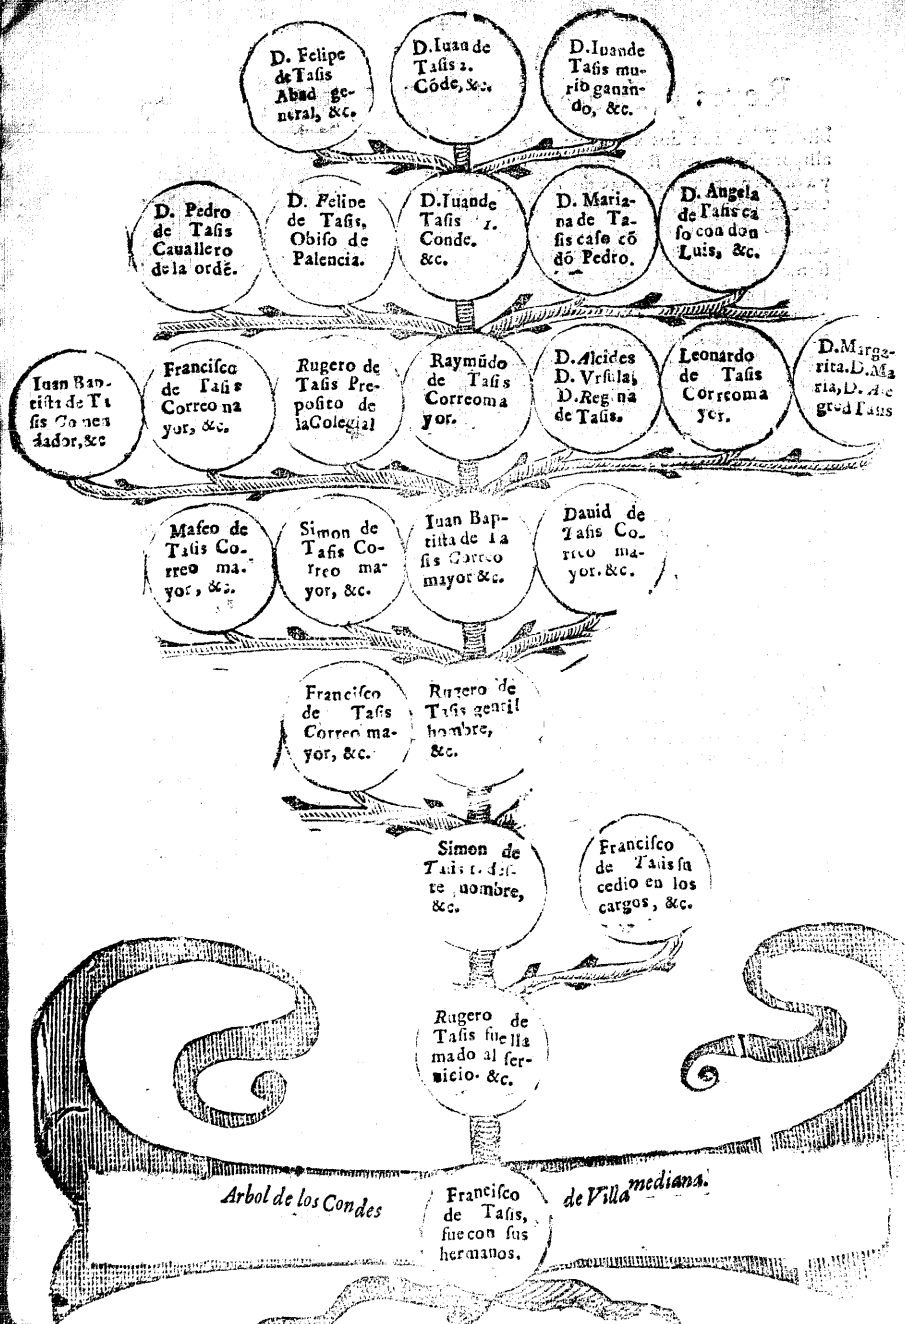 D. Felipe
de Tasis
Abad ge-
neral, &c.
D. Iuan de
Tasis 2.
Cōde, &c.
D. Iuande
Tasis mu-
riò ganan-
do, &c.
D. Pedro
de Tasis
Cauallero
de la ordē.
D. Felipe
de Tasis,
Obiso de
Palencia.
D. Iuande
Tasis 1.
Conde.
&c.
D. Maria-
na de Ta-
sis caso cō
dō Pedro.
D. Angela
de Tasis ca
so con don
Luis, &c.
Iuan Bap-
tista de Ta
sis Comen
dador, &c
Francisco
de Tasis
Correo na
yor, &c.
Rugero de
Tasis Pre-
posito de
la Colegial
Raymūdo
de Tasis
Correoma
yor.
D. Alcides
D. Vrsula,
D. Regina
de Tasis.
Leonardo
de Tasis
Correoma
yor.
D. Marga-
rita. D. Ma
ria, D. Ale
gred Tasis
Mafeo de
Tasis Co-
rreo ma-
yor, &c.
Simon de
Tasis Co-
rreo ma-
yor, &c.
Iuan Bap-
tista de Ta
sis Correo
mayor &c.
Dauid de
Tasis Co-
rreo ma-
yor. &c.
Francisco
de Tasis
Correo ma-
yor, &c.
Rugero de
Tasis gentil
hombre,
&c.
Simon de
Tasis 1. des-
te nombre,
&c.
Francisco
de Tasis su
cedio en los
cargos, &c.
Rugero de
Tasis fue lla
mado al ser-
uicio. &c.
Arbol de los Condes de Villa mediana.
Francisco
de Tasis,
fue con sus
hermanos.